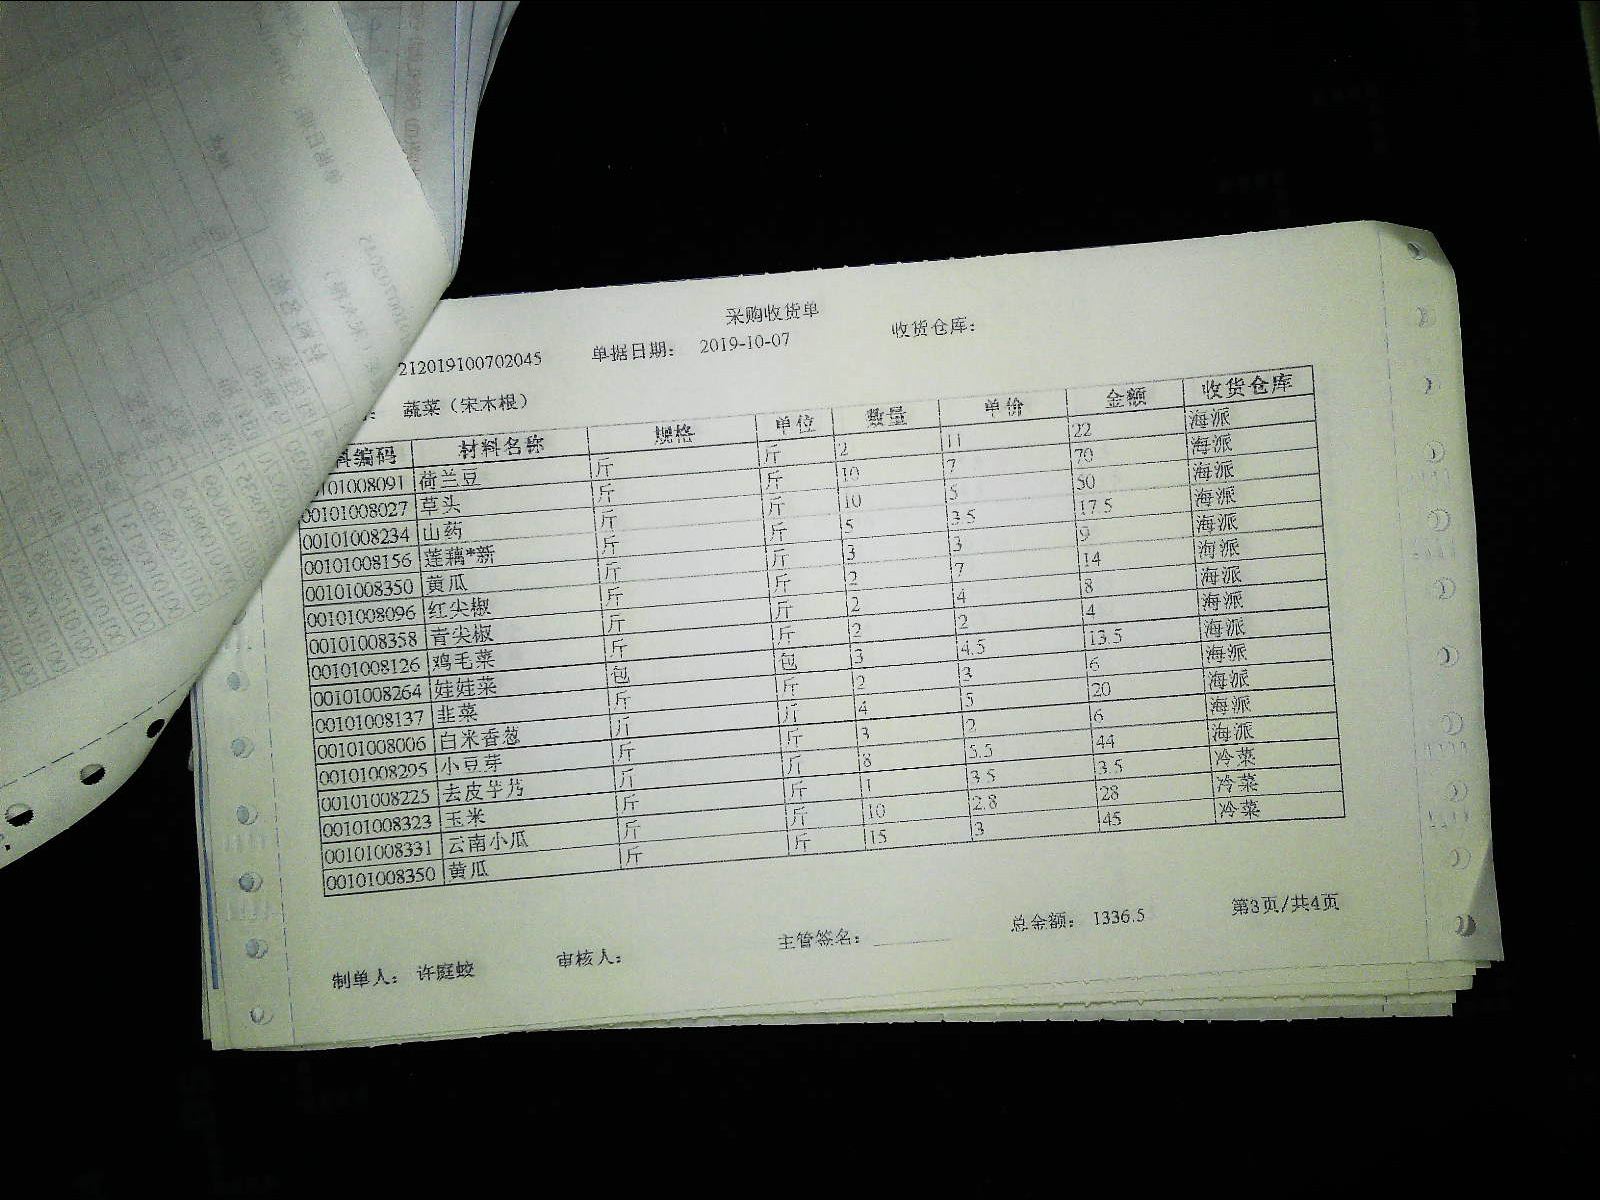 采购收货单
212019100702045 单据日期: 2019-10-07 收货仓库:
蔬菜(宋木根)
编码 材料名称 规格 单位 数量 单价 金额 收货仓库
0101008091 荷兰豆 斤 斤 2 11 22 海派
00101008027 草头 斤 斤 10 7 70 海派
00101008234 山药 斤 斤 10 5 50 海派
00101008156 莲藕*新 斤 斤 5 3.5 17.5 海派
00101008350 黄瓜 斤 斤 3 3 9 海派
00101008096 红尖椒 斤 斤 2 7 14 海派
00101008358 青尖椒 斤 斤 2 4 8 海派
00101008126 鸡毛菜 斤 斤 2 2 4 海派
00101008264 娃娃菜 包 包 3 4.5 13.5 海派
00101008137 韭菜 斤 斤 2 3 6 海派
00101008006 白米香葱 斤 斤 4 5 20 海派
00101008295 小豆芽 斤 斤 3 2 6 海派
00101008225 去皮芋艿 斤 斤 8 5.5 44 海派
00101008323 玉米 斤 斤 1 3.5 3.5 冷菜
00101008331 云南小瓜 斤 斤 10 2.8 28 冷菜
00101008350 黄瓜 斤 斤 15 3 45 冷菜
总金额: 1336.5 第3页/共4页
制单人: 许庭蛟 审核人: 主管签名: